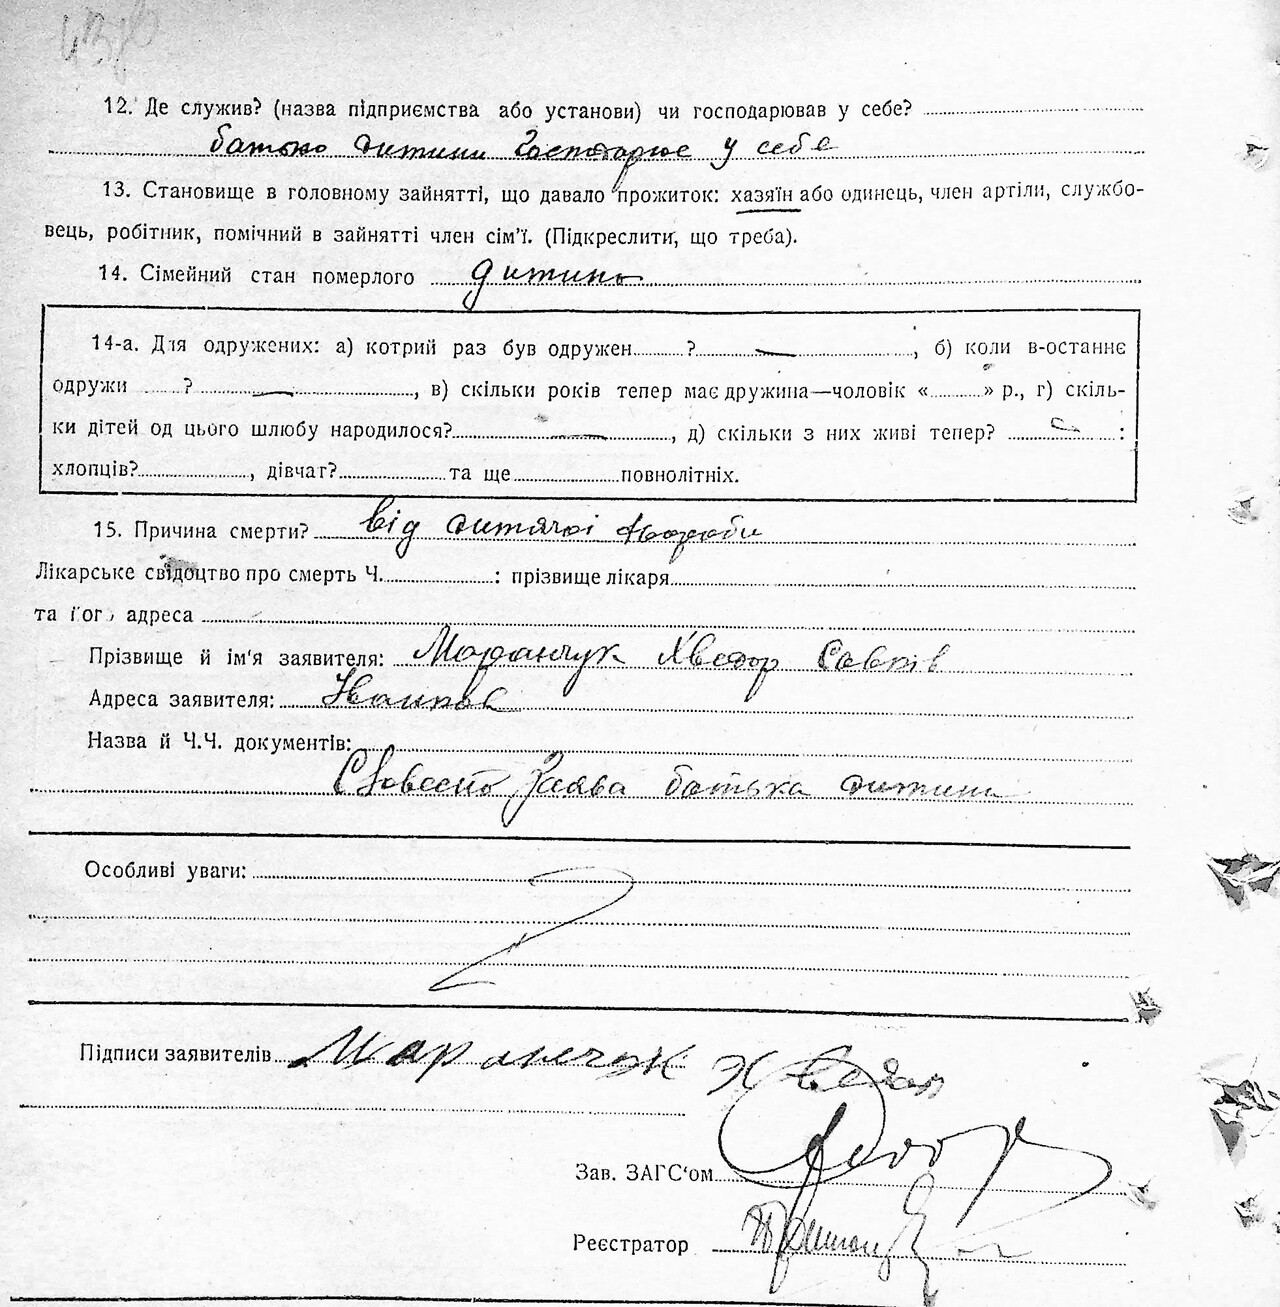 12. Де служив? (назва підприємства або установи) чи господарював у себе?
батько дитини господарює у себе
13. Становище в головному зайнятті, що давало прожиток: хазяїн або одинець, член артілі, службо-
вець, робітник, помічний в зайнятті член сім'ї. (Підкреслити, що треба).
14. Сімейний стан померлого дитина
14-а. Для одружених: а) котрий раз був одружен ? —, б) коли в-останнє
одружи ? —, в) скільки років тепер має дружина—чоловік « » р., г) скіль-
ки дітей од цього шлюбу народилося? —, д) скільки з них живі тепер? :
хлопців? , дівчат? та ще повнолітніх.
15. Причина смерти? від дитячої хвороби
Лікарське свідоцтво про смерть Ч. : прізвище лікаря
та його адреса
Прізвище й ім'я заявителя: Маранчук Хведор Савків
Адреса заявителя:
Назва й Ч.Ч. документів:
Словесно заява батька дитини
Особливі уваги:
Підписи заявителів Маранчук Хведор
Зав. ЗАГС'ом
Реєстратор